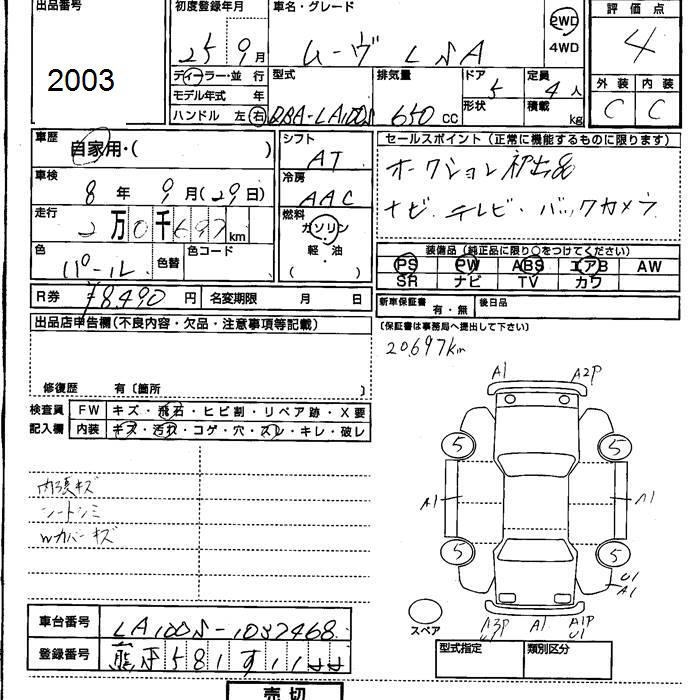 出品番号
2003
初度登録年月
25 9月
車名・グレード
ムーヴ L SA
2WD
4WD
評価点
4
ディーラー・並行
モデル年式 年
ハンドル 左 右
型式
DBA-LA100S
排気量
650 cc
ドア
5
形状
定員
4人
積載
kg
外装 内装
C C
車歴
自家用・( )
車検
8年 9月(29日)
走行
2万0千697km
色
パール
色替
色コード
シフト
AT
冷房
AAC
燃料
ガソリン
軽・油
( )
セールスポイント(正常に機能するものに限ります)
オークション初出品
ナビ.テレビ・バックカメラ
装備品(純正品に限り〇をつけてください)
PS PW ABS エアB AW
SR ナビ TV カワ
R券 ¥8,490円 名変期限 月 日
新車保証書 有・無 後日品
(保証書は事務局へ提出して下さい)
20,697km
出品店申告欄(不良内容・欠品・注意事項等記載)
修復歴 有〔箇所 〕
検査員記入欄
FW キズ・飛石・ヒビ割・リペア跡・X要
内装 キズ・汚れ・コゲ・穴・スレ・キレ・破レ
内張キズ
シートシミ
Wカバーキズ
A1 A2P
5 5
A1 A1
5 5
U1
A1
スペア
A3P A1 A1P
U1
車台番号 LA100S-1032468
登録番号 581 す 11
型式指定 類別区分
売切